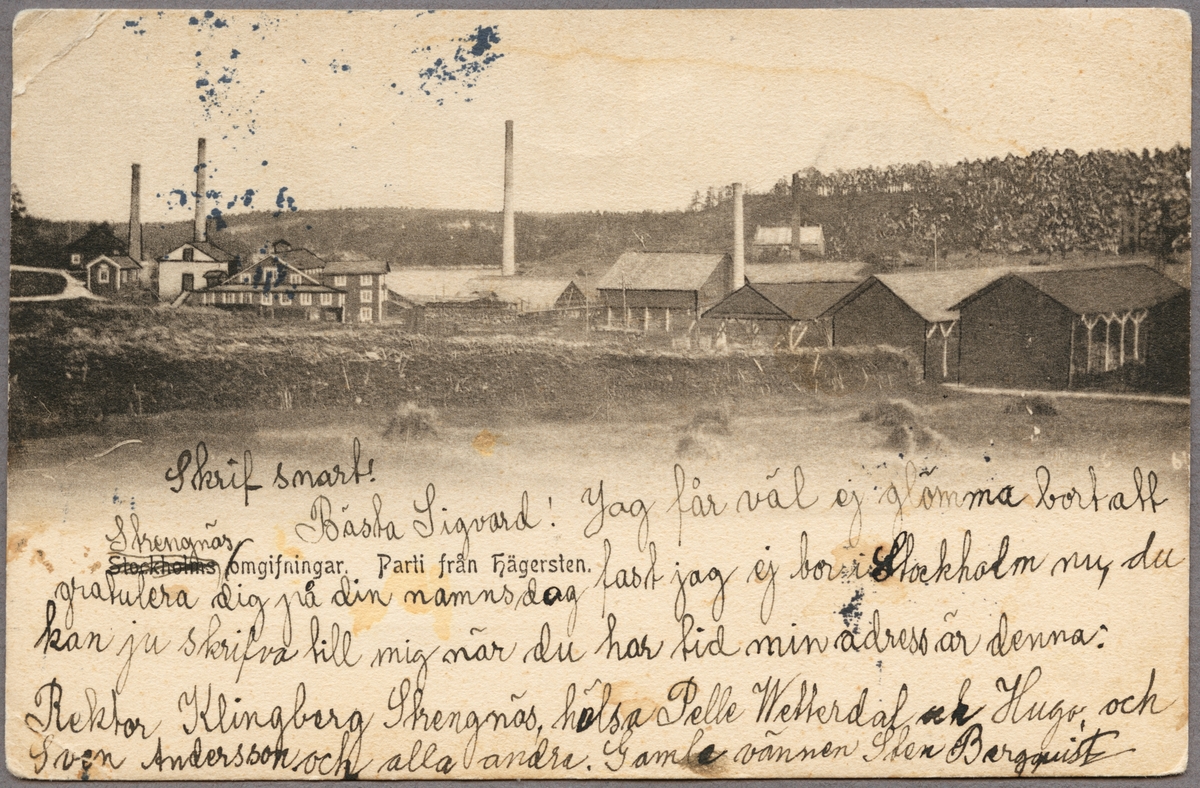 Skrif snart!
Bästa Sigvard! Jag får väl ej glömma bort att
Strengnäs
Stockholms omgifningar. Parti från Hägersten.
gratulera dig på din namnsdag fast jag ej bor i Stockholm nu, du
kan ju skrifva till mig när du har tid min adress är denna:
Rektor Klingberg Strengnäs, hälsa Pelle Wetterdal, Hugo, och
Sven Andersson och alla andra. Gamle vännen Sten Bergquist